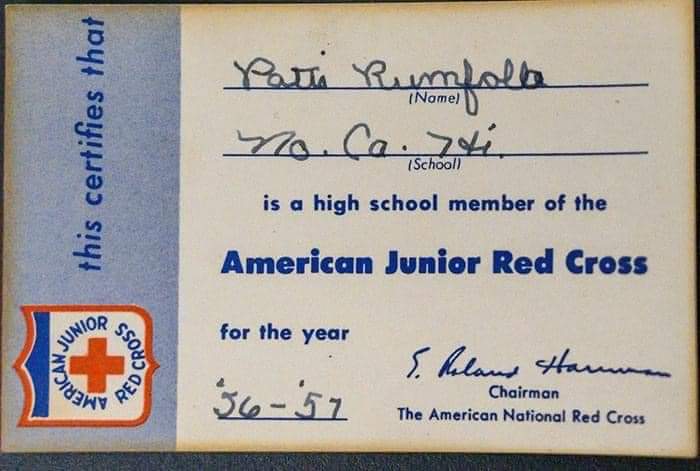 this certifies that
Patti Rumfolla
(Name)
No. Ca. Hi.
(School)
is a high school member of the
American Junior Red Cross
for the year
'56-'57
E. Roland Harriman
Chairman
The American National Red Cross
AMERICAN JUNIOR
RED CROSS